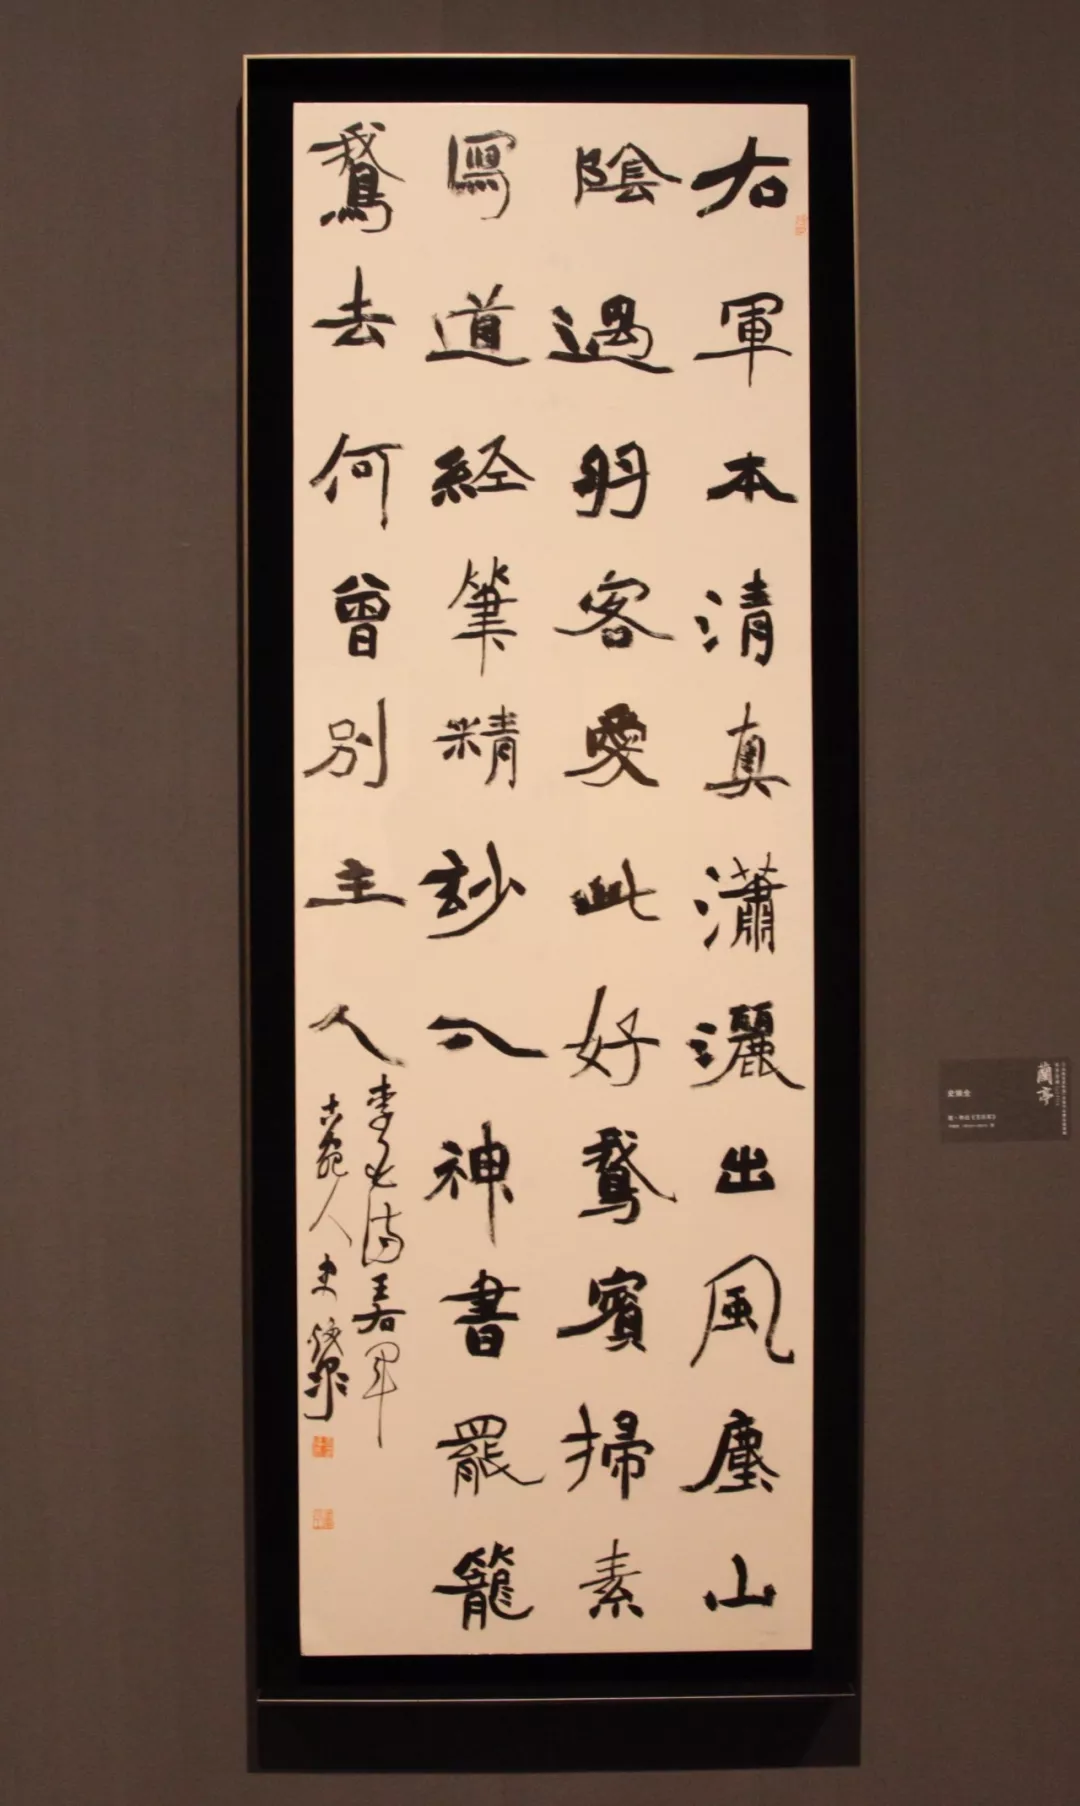 右軍本清真瀟灑出風塵山
陰遇羽客愛此好鵞賓掃素
寫道経筆精玅入神書罷籠
鵞去何曾別主人
李白诗王右軍
古宛人史
蘭亭